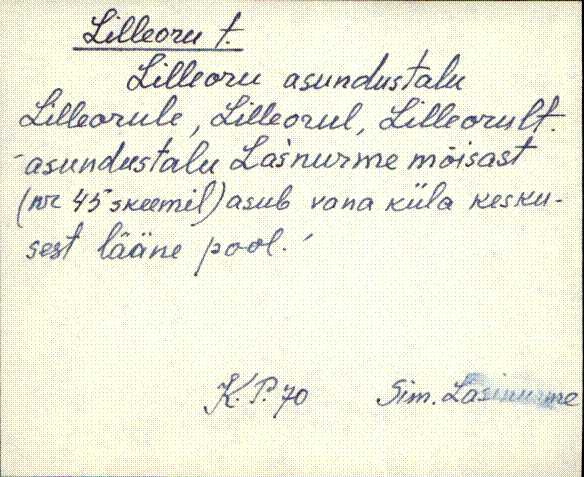 Lilleoru t.
Lilleoru asundustalu
Lilleorule, Lilleorul, Lilleorult.
-asundustalu Lasnurme mõisast
(nr 45 skeemil) asub vana küla kesku-
sest lääne pool.
K. P. 70 Sim. Lasinurme